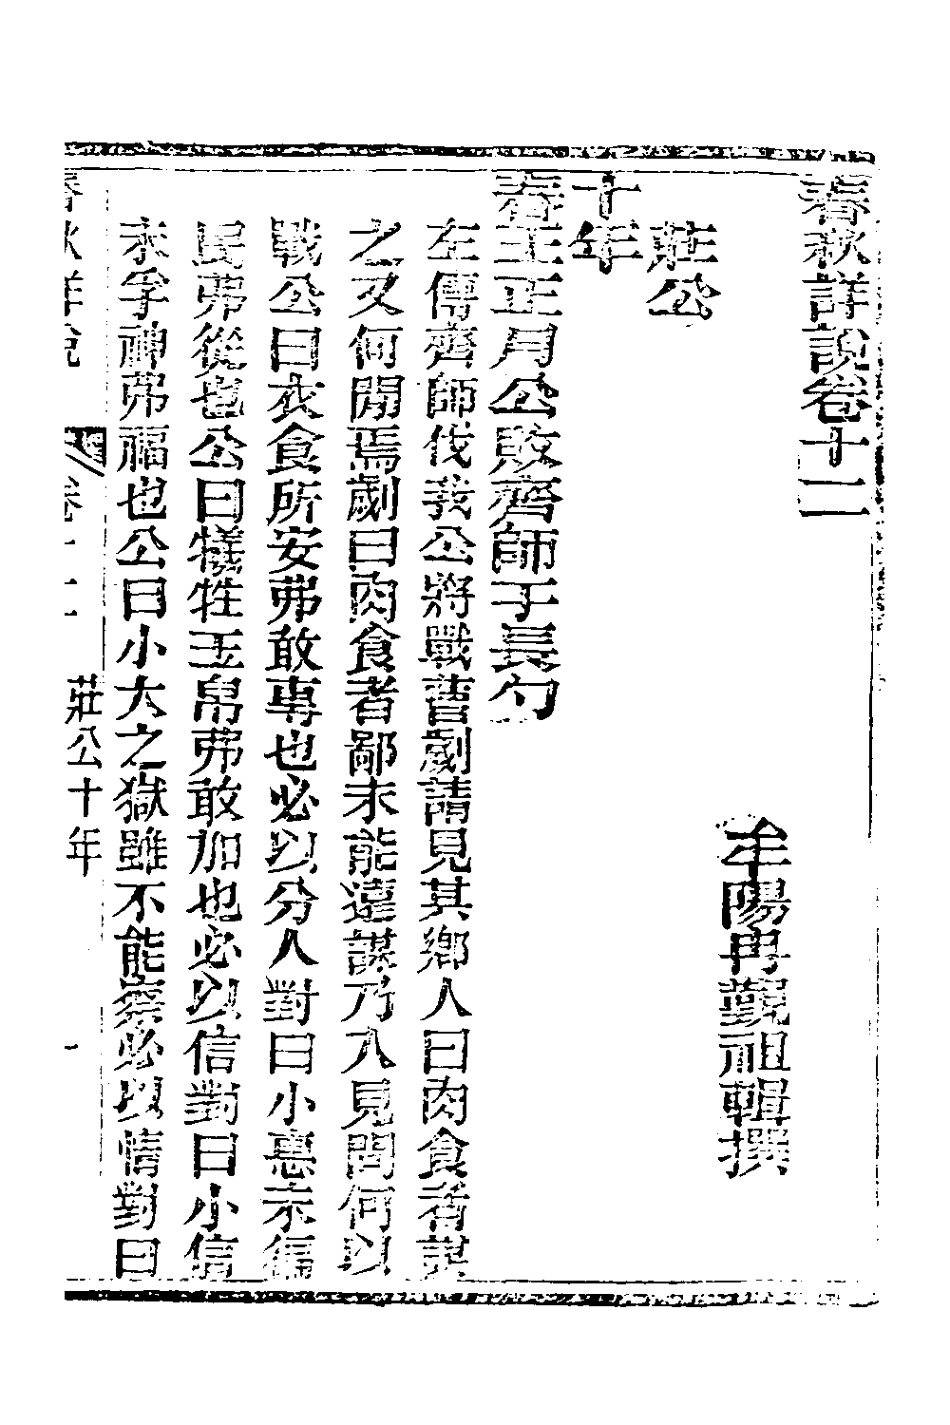 春秋詳說卷十二
牟陽冉覲祖輯撰
莊公
十年
春王正月公敗齊師于長勺
左傳齊師伐我公將戰曹劌請見其鄉人曰肉食者謀
之又何閒焉劌曰肉食者鄙未能遠謀乃入見問何以
戰公曰衣食所安弗敢專也必以分人對曰小惠未徧
民弗從也公曰犧牲玉帛弗敢加也必以信對曰小信
未孚神弗福也公曰小大之獄雖不能察必以情對曰
春秋詳說 卷十二 莊公十年 一